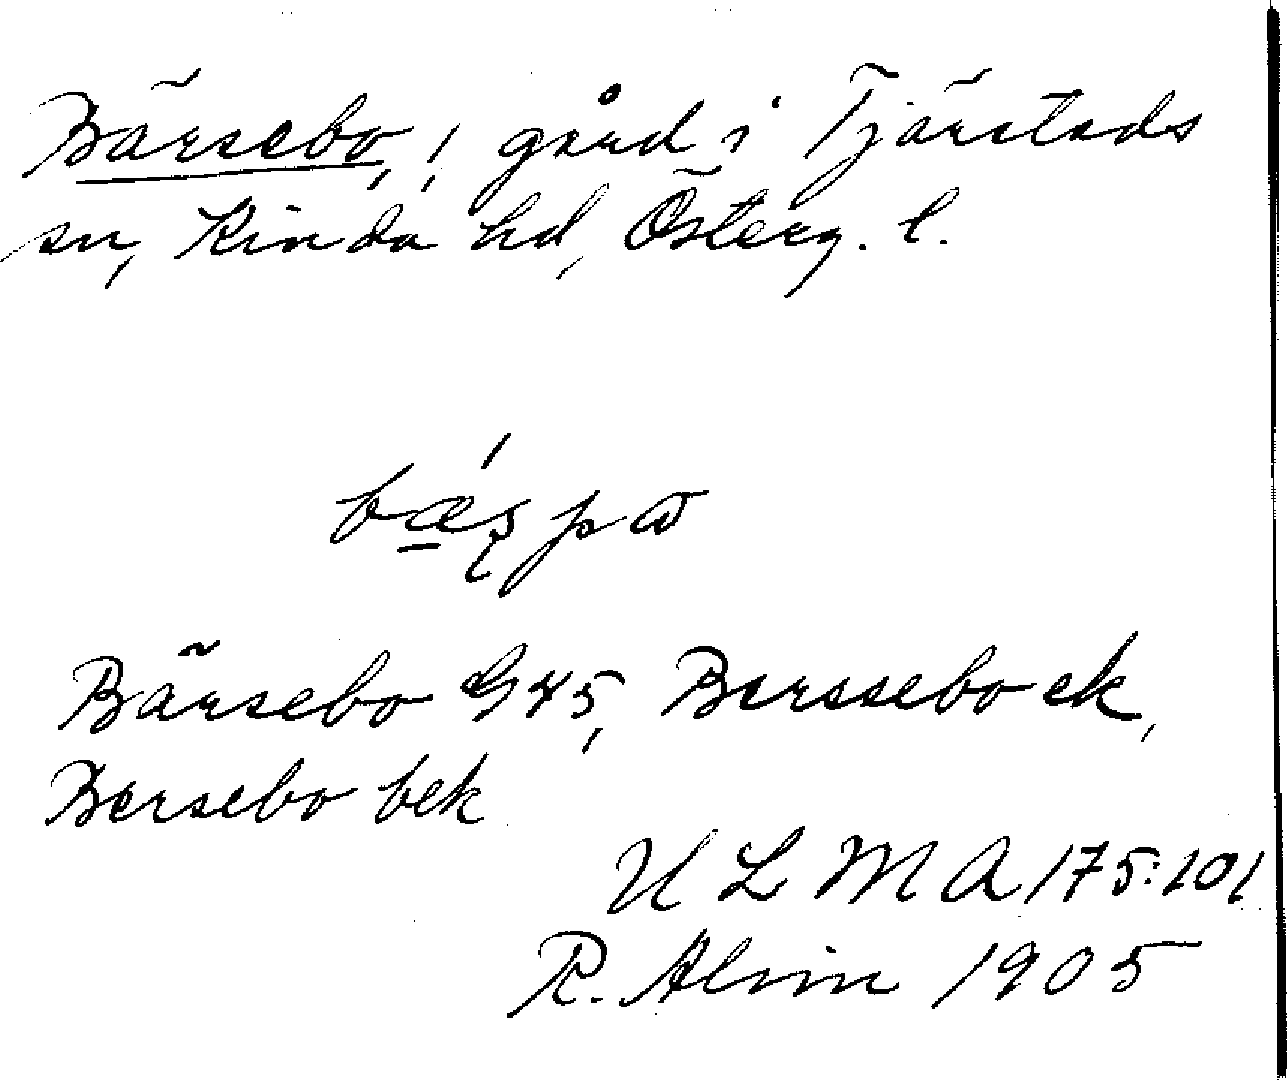 Bärsebo, ! gård i Tjärstads
sn, Kinda hd, Österg. l.
Bärsebo G45, Berssebo ek,
Bersebo bek
ULMA 175:101
R. Alvin 1905